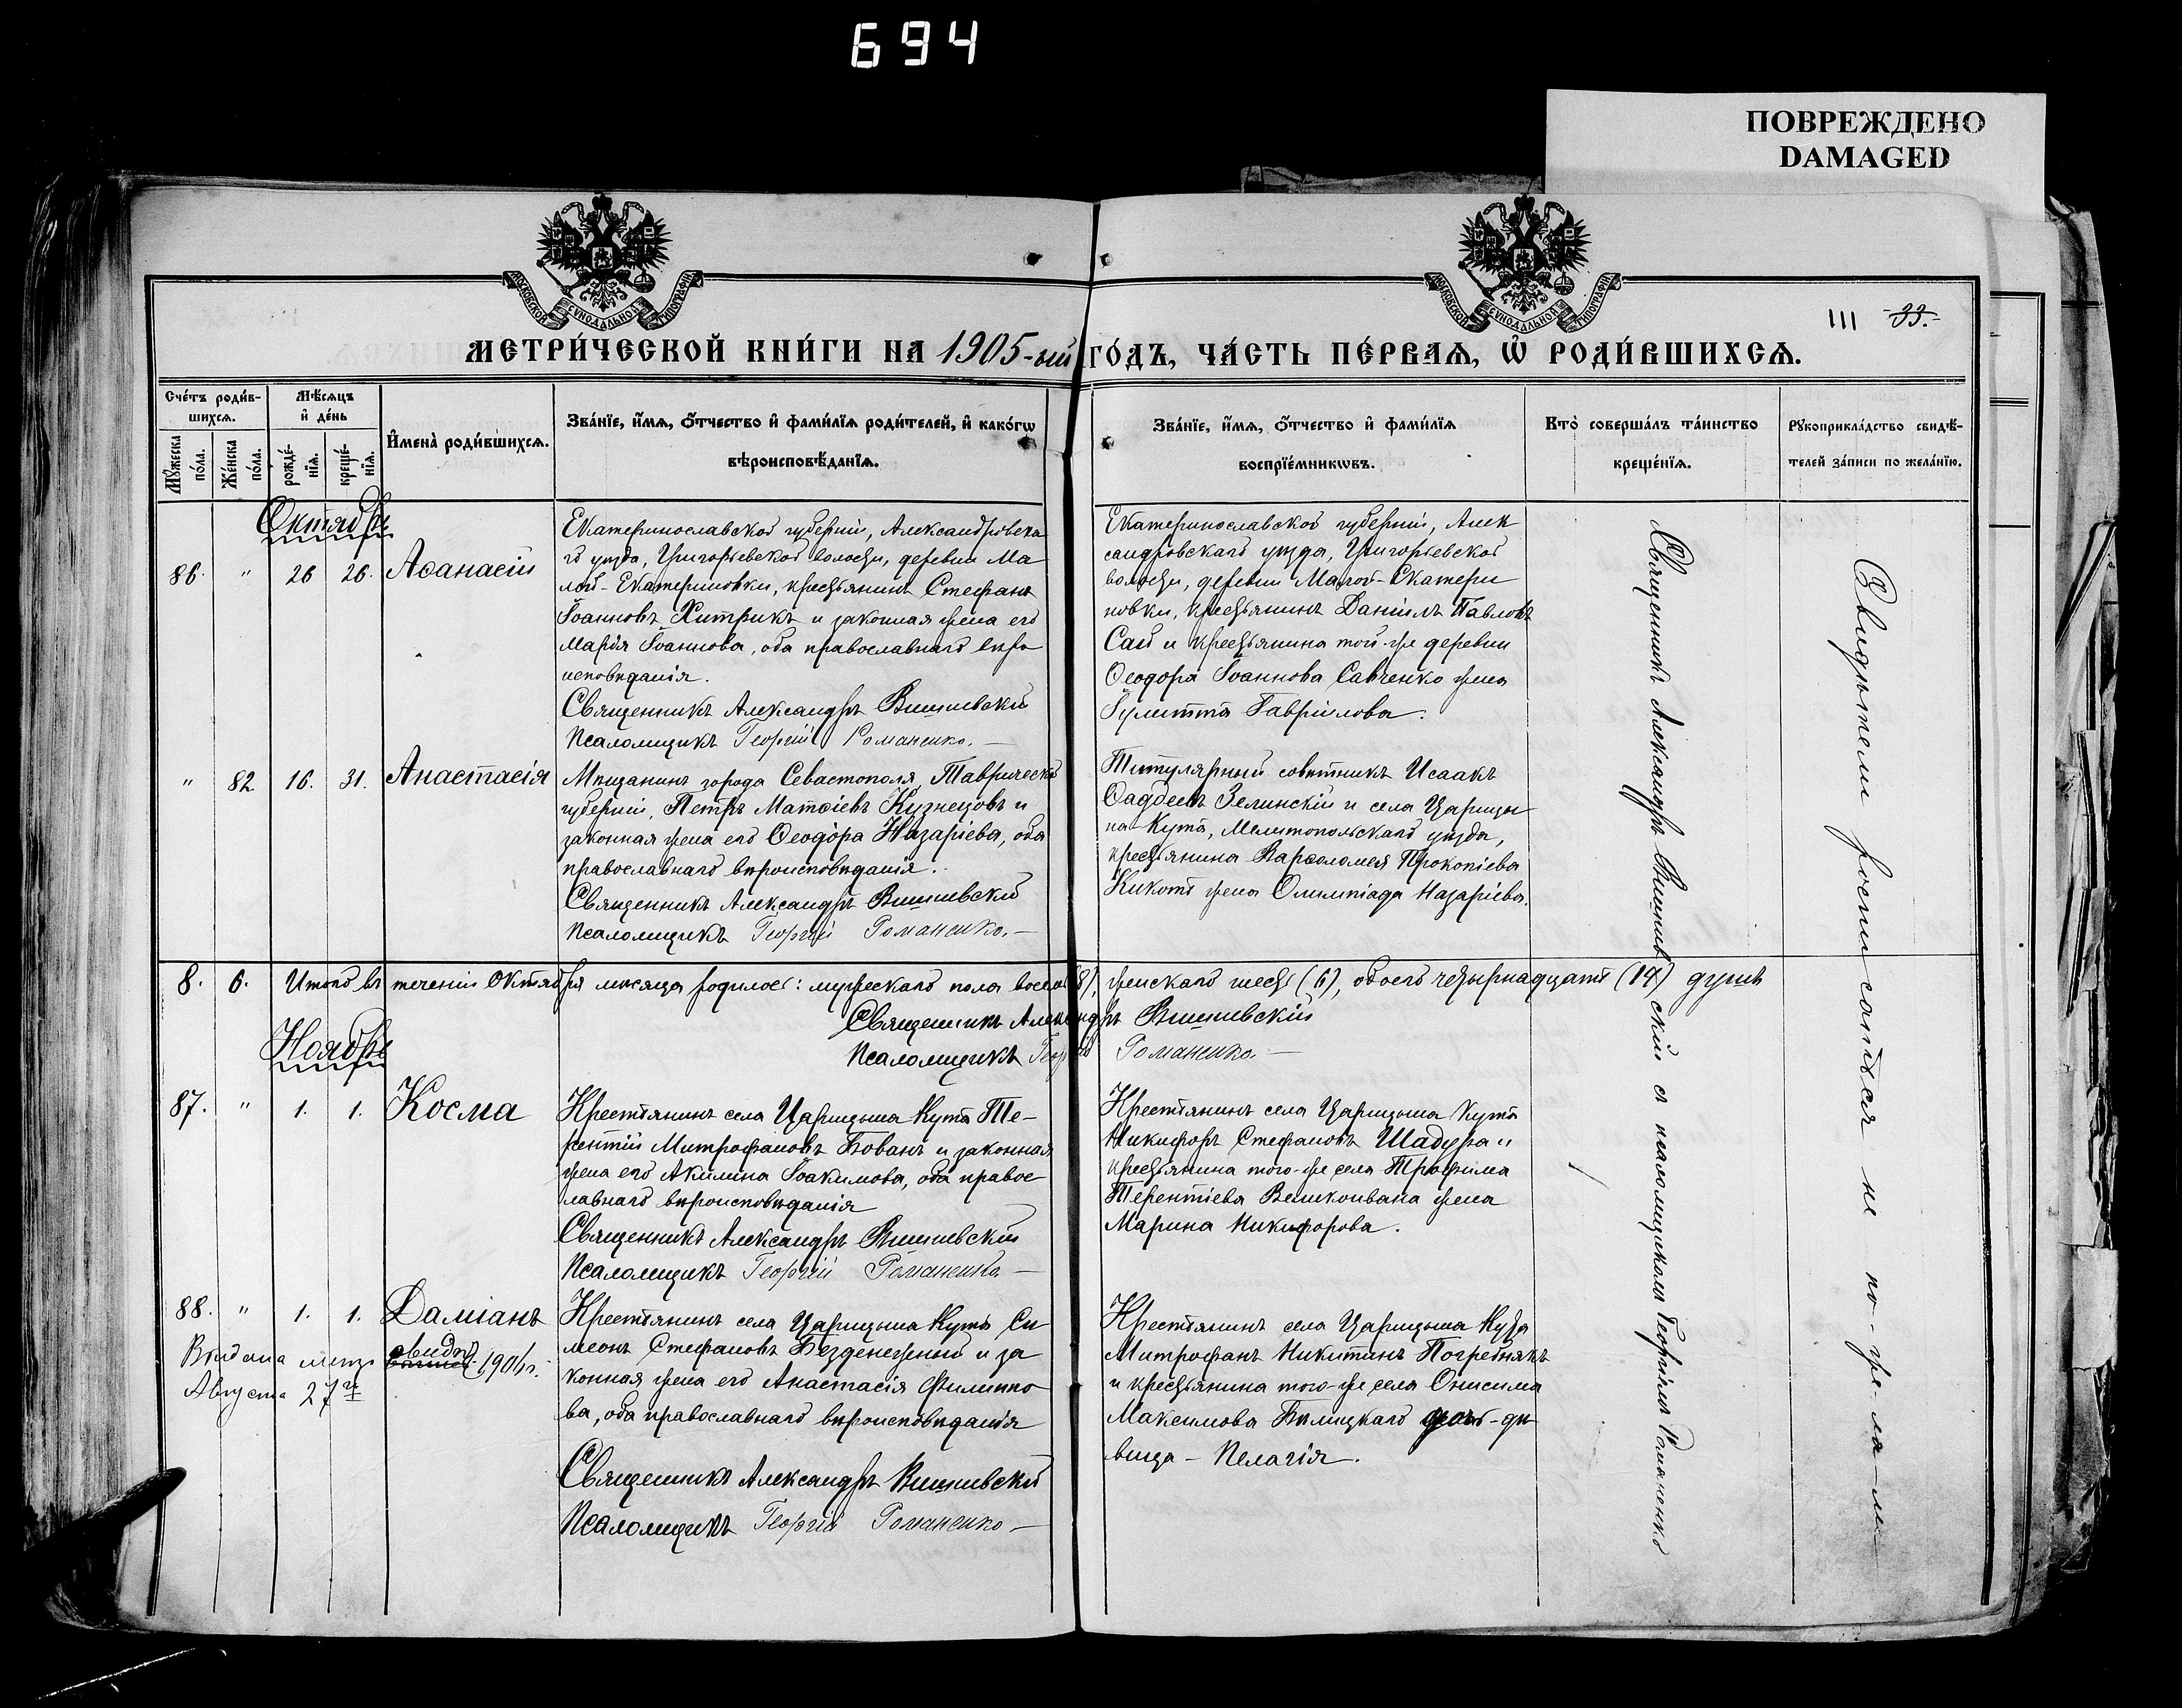 694
ПОВРЕЖДЕНО
DAMAGED
МОСКОВСКОЙ СѴНОДАЛЬНОЙ ТИПОГРАФІИ
МОСКОВСКОЙ СѴНОДАЛЬНОЙ ТИПОГРАФІИ
111 33.
МЕТРИ́ЧЕСКОЙ КНИ́ГИ НА 1905-ый ГО́ДЪ, ЧА́СТЬ ПЕ́РВАѦ, Ѡ҆ РОДИ́ВШИХСѦ.
Сче́тъ роди́в-
шихсѧ.
Мꙋ́жеска по́ла.
Же́нска по́ла.
Мѣ́сѧцъ
и҆ де́нь
рожде́-
нїѧ.
креще́-
нїѧ.
И҆мена̀ роди́вшихсѧ.
Зва́нїе, и҆́мѧ, ѻ҆́тчество и҆ фами́лїѧ роди́телей, и҆ како́гѡ
вѣроисповѣ́данїѧ.
Зва́нїе, и҆́мѧ, ѻ҆́тчество и҆ фами́лїѧ
воспрїе́мникѡвъ.
Кто̀ соверша́лъ та́инство
креще́нїѧ.
Рꙋкоприкла́дство свидѣ́-
телей за́писи по жела́нїю.
Октябрь
86. " 26 26. Аѳанасій
Екатеринославской губерніи, Александровска
го уѣзда, Григорьевской волости, деревни Ма
лой-Екатериновки, крестьянинъ Стефанъ
Іоанновъ Хитрикъ и законная жена его
Марія Іоаннова, оба православнаго вѣро
исповѣданія.
Священникъ Александръ Вишневскій
Псаломщикъ Георгій Романенко.
Екатеринославской губерніи, Алек
сандровскаго уѣзда, Григорьевской
волости, деревни Малой-Екатери
новки, крестьянинъ Даніилъ Павловъ
Сай и крестьянина той-же деревни
Ѳеодора Іоаннова Савченко жена
Іулитта Гаврилова.
" 82 16. 31. Анастасія
Мѣщанинъ города Севастополя Таврической
губерніи, Петръ Матѳіевъ Кузнецовъ и
законная жена его Ѳеодора Назаріева, оба
православнаго вѣроисповѣданія.
Священникъ Александръ Вишневскій
Псаломщикъ Георгій Романенко.
Титулярный совѣтникъ Исаакъ
Ѳаддеевъ Зелинскій и села Царицы
на Кута, Мелитопольскаго уѣзда,
крестьянина Варѳоломея Прокопіева
Кикотя жена Олимпіада Назаріева.
8. 6. Итого въ теченіи Октября мѣсяца родилось: мужескаго пола восемь (8), женскаго шесть (6), обоего четырнадцать (14) душъ
Священникъ Александръ Вишневскій
Псаломщикъ Георгій Романенко.
Ноябрь
87. " 1. 1. Косма
Крестьянинъ села Царицына Кута Те-
рентій Митрофановъ Бованъ и законная
жена его Акилина Іоакимова, оба правос
лавнаго вѣроисповѣданія
Священникъ Александръ Вишневскій
Псаломщикъ Георгій Романенко
Крестьянинъ села Царицына Кута
Никифоръ Стефановъ Шадура и
крестьянина того-же села Трофима
Терентіева Великоивана жена
Марина Никифорова.
88. " 1. 1. Даміанъ
Выдана метр. свидѣт.
Августа 27го
Крестьянинъ села Царицына Кута Си
меонъ Стефановъ Безденежный и за
конная жена его Анастасія Филиппо
ва, оба православнаго вѣроисповѣданія
Священникъ Александръ Вишневскій
Псаломщикъ Георгій Романенко
Крестьянинъ села Царицына Кута
Митрофанъ Никитинъ Погребнякъ
и крестьянина того-же села Онисима
Максимова Бѣлицкаго дочь-дѣ
вица - Пелагія.
Священникъ Александръ Вишневскій съ псаломщикомъ Георгіемъ Романенко
Свидѣтели росписаться не по-же-ла-ли